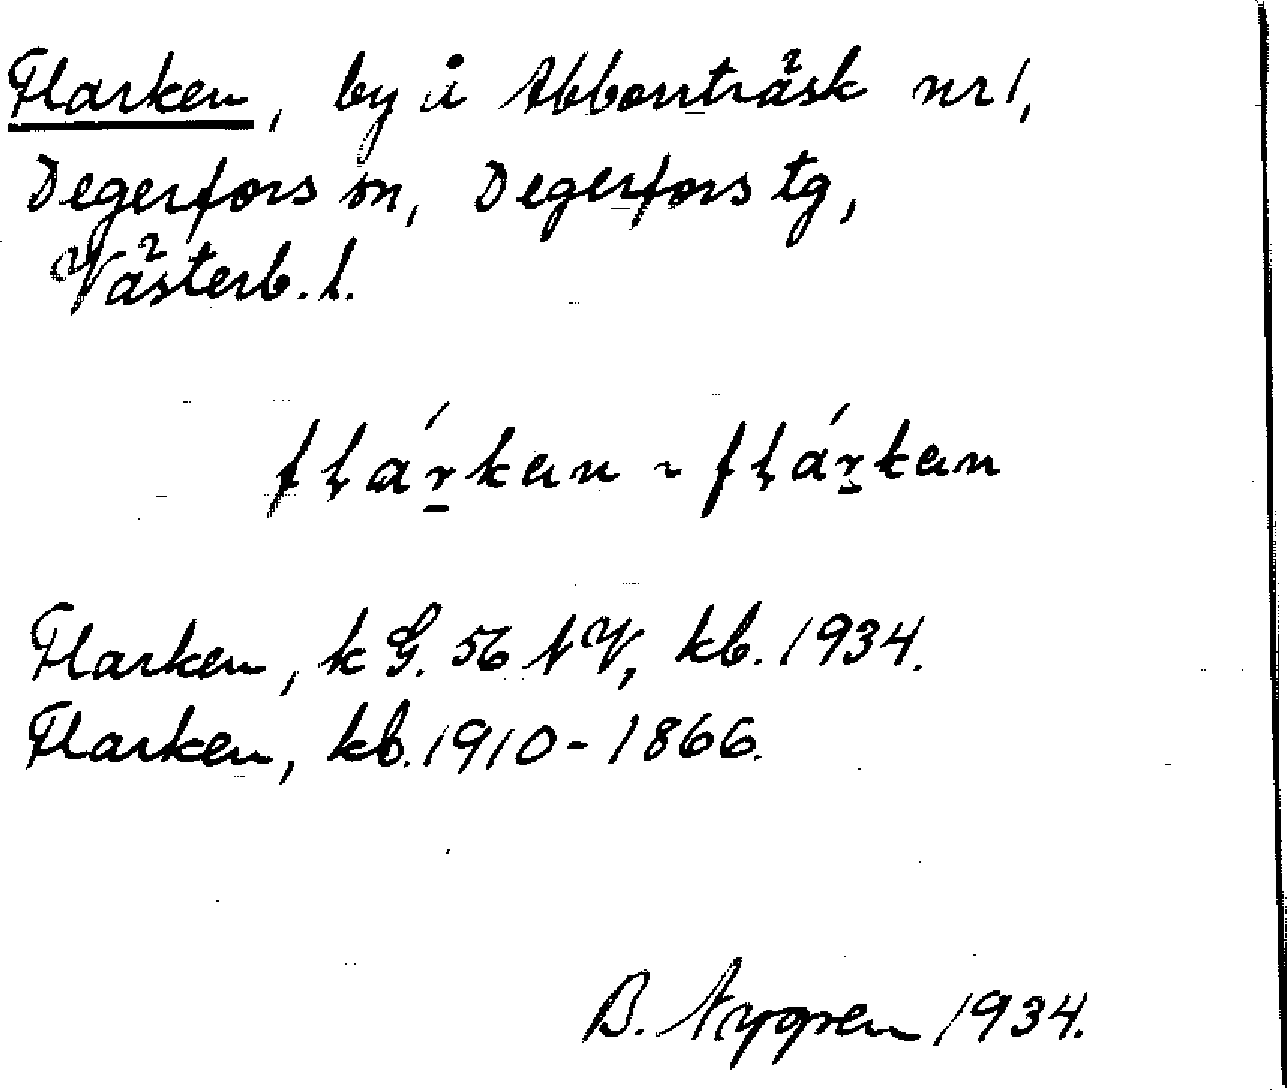 Flarken, by å Abborrträsk nr 1,
Degerfors sn, Degerfors tg,
Västerb. l.
flárkan ~ flárkan
Flarken, k G. 56 NV, kb. 1934.
Flarken, kb. 1910-1866.
B. Nygren 1934.